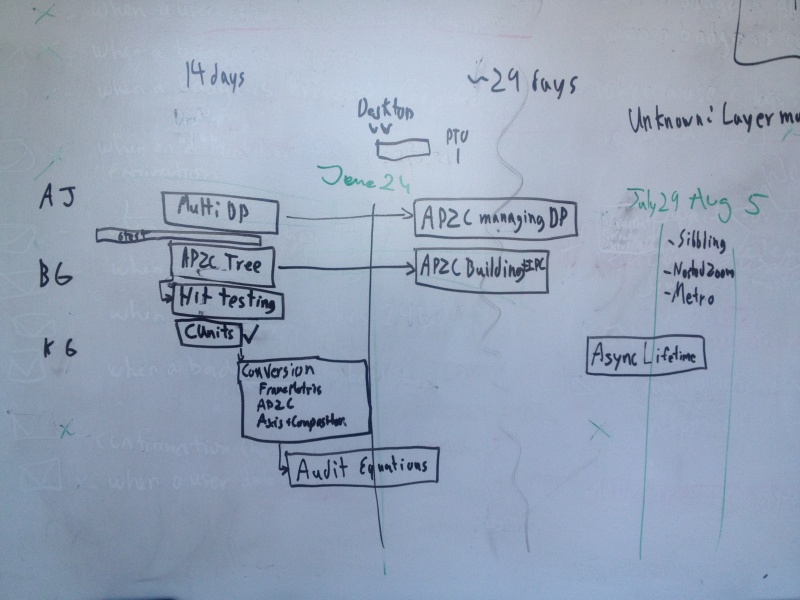 14 days
~29 days
Desktop
PTO
Unknown: Layer
June 24
July 29 Aug 5
AJ
Multi DP
APZC managing DP
gtest
BG
APZC Tree
APZC Building + IPC
Hit testing
- Sibbling
- Nested Zoom
- Metro
KG
CUnits
Async Lifetime
Conversion
FrameMetric
APZC
Axis + Compositor
Audit Equations